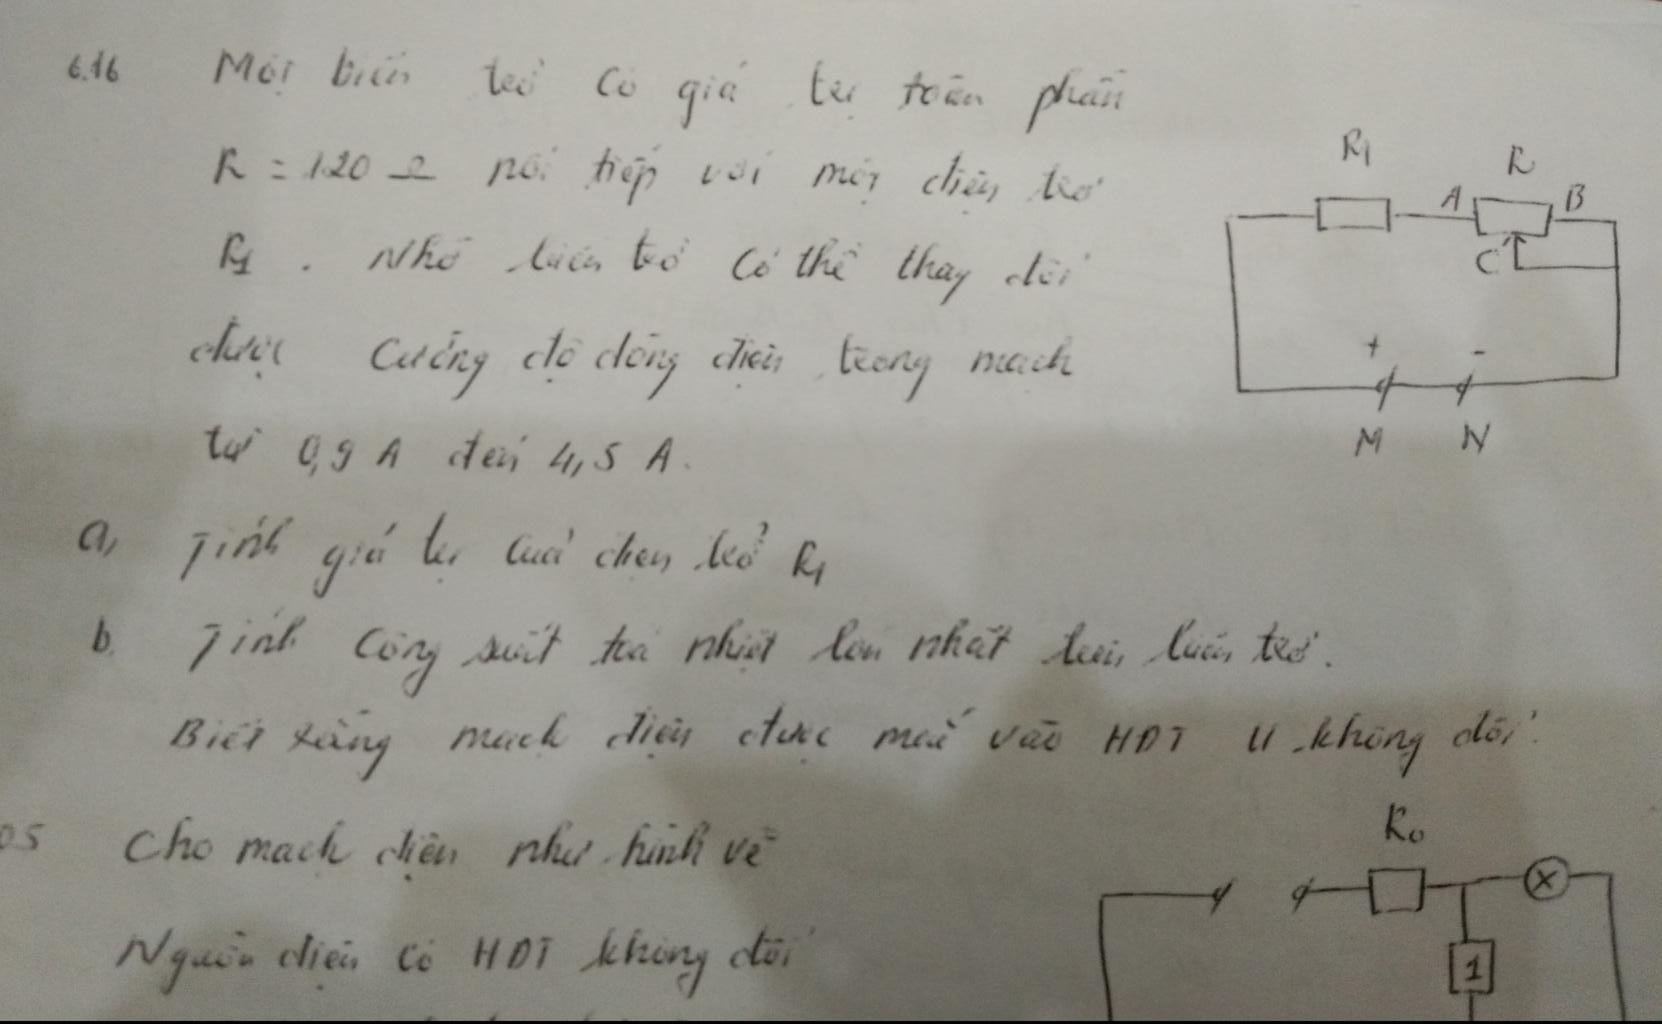 6.16 Một biến trở có giá trị toàn phần
R = 120 Ω nối tiếp với một điện trở
R1. Nhờ biến trở có thể thay đổi
được cường độ dòng điện trong mạch
từ 0,9 A đến 4,5 A.
a, Tính giá trị của điện trở R1
b. Tính công suất tỏa nhiệt lớn nhất trên biến trở.
Biết rằng mạch điện được mắc vào HĐT U không đổi.
R1 R
A B
C
+ -
M N
05 Cho mạch điện như hình vẽ
Nguồn điện có HĐT không đổi
R0
X
1